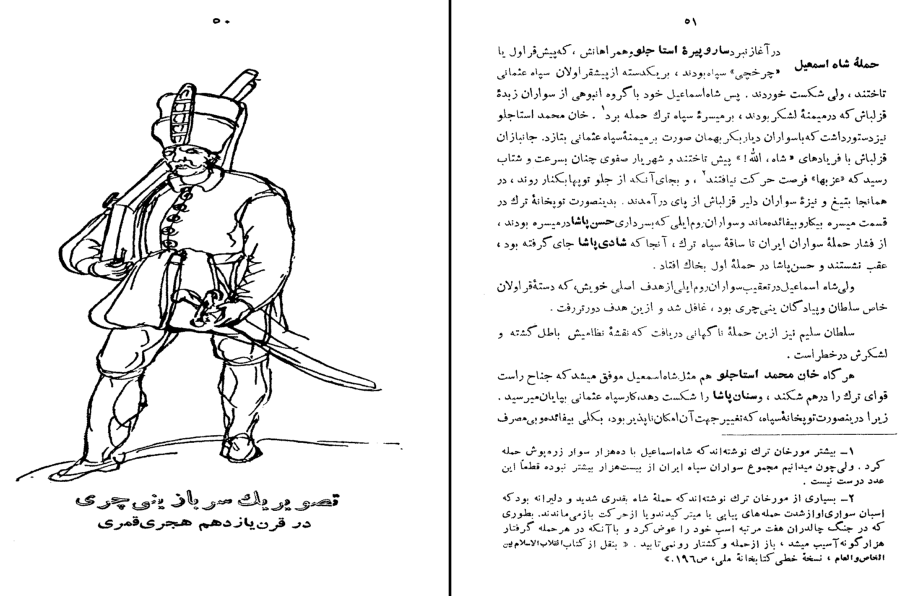 ۵۰
تصویر یك سرباز ینی چری
در قرن یازدهم هجری قمری
۵۱
حملهٔ شاه اسمعیل
در آغاز نبرد سارو پیرهٔ استاجلو وهمراهانش ، که پیش قراول یا
«چرخچی» سپاه بودند ، بریکدسته از پیشقراولان سپاه عثمانی
تاختند ، ولی شکست خوردند . پس شاه اسماعیل خود با گروه انبوهی از سواران زبدهٔ
قزلباش که درمیمنهٔ لشکر بودند ، برمیسرهٔ سپاه ترك حمله برد۱ . خان محمد استاجلو
نیز دستور داشت که باسواران دیاربکر بهمان صورت بر میمنهٔ سپاه عثمانی بتازد. جانبازان
قزلباش با فریادهای «شاه ، الله!» پیش تاختند و شهریار صفوی چنان بسرعت و شتاب
رسید که «عزبها» فرصت حرکت نیافتند۲ ، و بجای آنکه از جلو توپها بکنار روند ، در
همانجا بتیغ و نیزهٔ سواران دلیر قزلباش از پای درآمدند . بدینصورت توپخانهٔ ترك در
قسمت میسره بیکار و بیفائده ماند و سواران روم ایلی که بسرداری حسن پاشا درمیسره بودند ،
از فشار حملهٔ سواران ایران تا ساقهٔ سپاه ترك ، آنجا که شادی پاشا جای گرفته بود ،
عقب نشستند و حسن پاشا در حملهٔ اول بخاك افتاد .
ولی شاه اسماعیل درتعقیب سواران روم ایلی از هدف اصلی خویش، که دستهٔ قراولان
خاس سلطان و پیادگان ینی چری بود ، غافل شد و ازین هدف دورتر رفت .
سلطان سلیم نیز ازین حملهٔ ناگهانی دریافت که نقشهٔ نظامیش باطل گشته و
لشکرش درخطر است .
هرگاه خان محمد استاجلو هم مثل شاه اسمعیل موفق میشد که جناح راست
قوای ترك را درهم شکند ، و سنان پاشا را شکست دهد، کار سپاه عثمانی بپایان میرسید .
زیرا درینصورت توپخانهٔ سپاه، که تغییر جهت آن امکان ناپذیر بود، بکلی بیفائده و بی مصرف
۱ــ بیشتر مورخان ترك نوشته اند که شاه اسماعیل با ده هزار سوار زره پوش حمله
کرد . ولی چون میدانیم مجموع سواران سپاه ایران از بیست هزار بیشتر نبوده قطعاً این
عدد درست نیست .
۲ــ بسیاری از مورخان ترك نوشته اند که حملهٔ شاه بقدری شدید و دلیرانه بود که
اسبان سواری او از شدت حمله های پیاپی یا میترکیدند و یا از حرکت بازمی ماندند. بطوری
که در جنگ چالدران هفت مرتبه اسب خود را عوض کرد و با آنکه در هر حمله گرفتار
هزار گونه آسیب میشد ، باز از حمله و کشتار رو نمی تابید . « بنقل از کتاب انقلاب الاسلام بین
الخاص والعام ، نسخهٔ خطی کتابخانهٔ ملی، ص۱۹۶.»